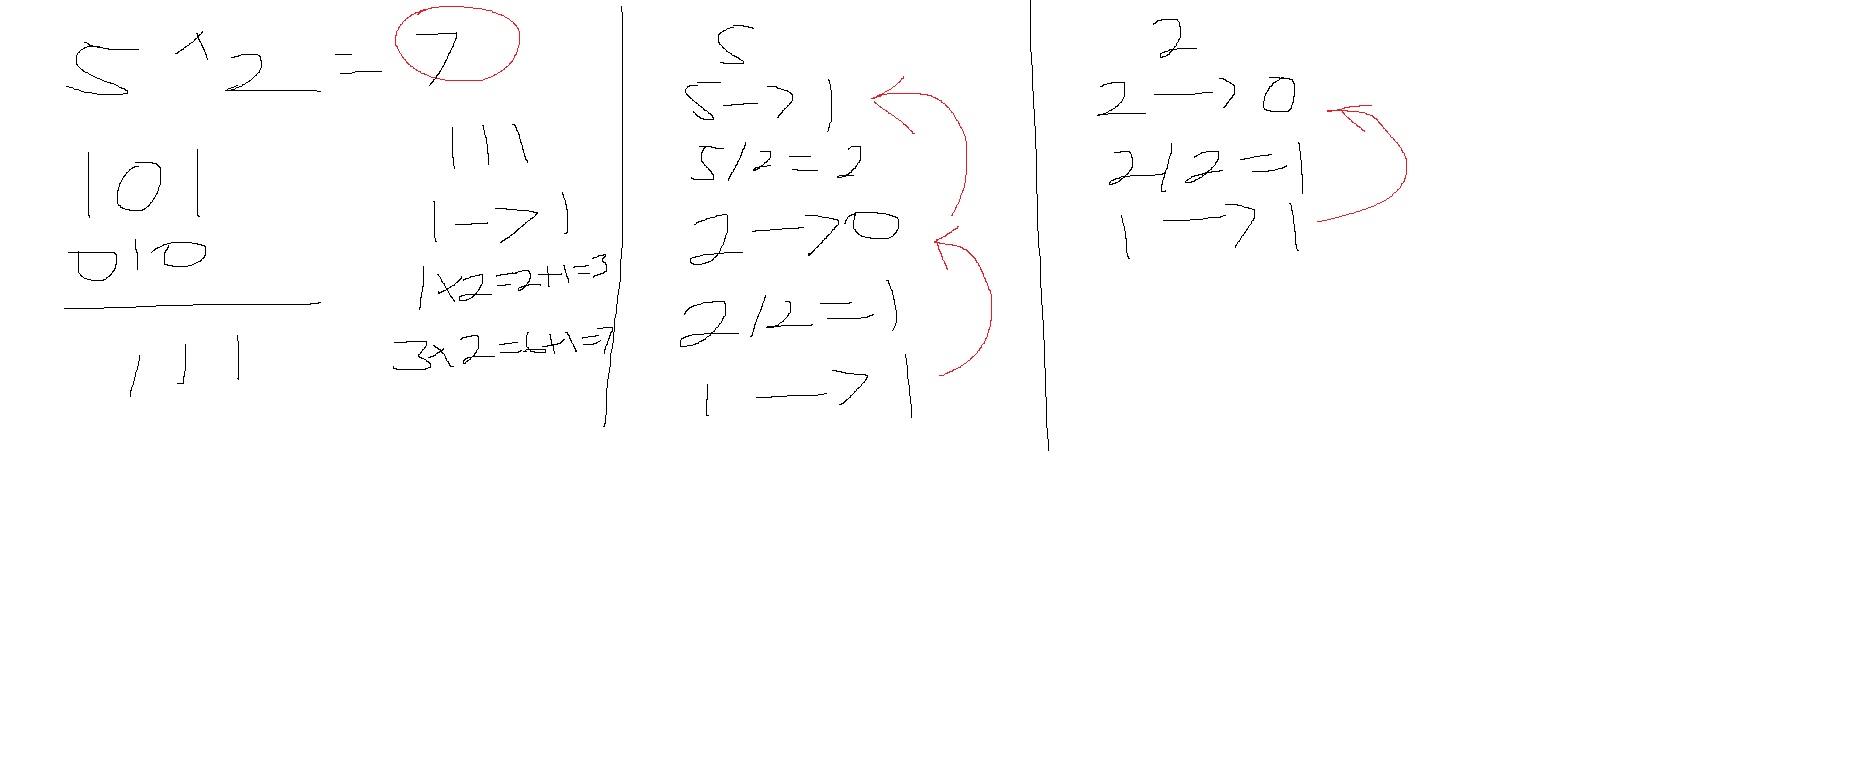 5 ^ 2 = 7
101
010
111
111
1 -> 1
1x2=2+1=3
3x2=6+1=7
5
5 -> 1
5/2=2
2 -> 0
2/2=1
1 -> 1
2
2 -> 0
2/2=1
1 -> 1